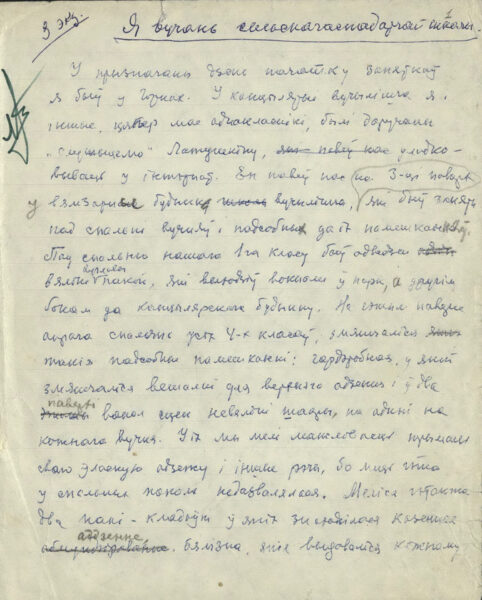 3 экз.
Я вучань сельскагаспадарчай школы.
У прызначаны дзень пачатку заняткаў
я быў у Горках. У канцылярыі вучылішча я і
іншые, цяпер мае аднакласнікі, былі даручаны
"служыцелю" Латушкіну, які павёў нас уладко-
вывацца у інтэрнат. Ён павёў нас на 3-ці паверх
у вялізарны будынак школы вучылішча, які быў заняты
пад спальні вучняў і падсобныя да іх памешканні.
Пад спальню нашага 1га класу быў адведзен один
вялікі вуглавы пакой, які выходзіў вокнамі ў парк, а другім
бокам да канцылярскага будынку. На гэтым паверсе
апрача спальняў усіх 4-х класаў, змяшчаліся
такія падсобныя памешканні: гардэробная, у якой
змяшчаліся вешалкі для верхняга адзення і ў два
паверхі вакол сцен невялікія шафы, па адной на
кожнага вучня. У іх мы мелі магчымасць трымаць
сваю уласную адзежу і іншыя рэчы, бо мець гэта
у спальных пакоях недазвалялася. Меліся гэткжа
два пакі - кладоўкі ў якіх знаходзілася казённае
адзенне
обмундирование. бялізна, якія выдаваліся кожнаму